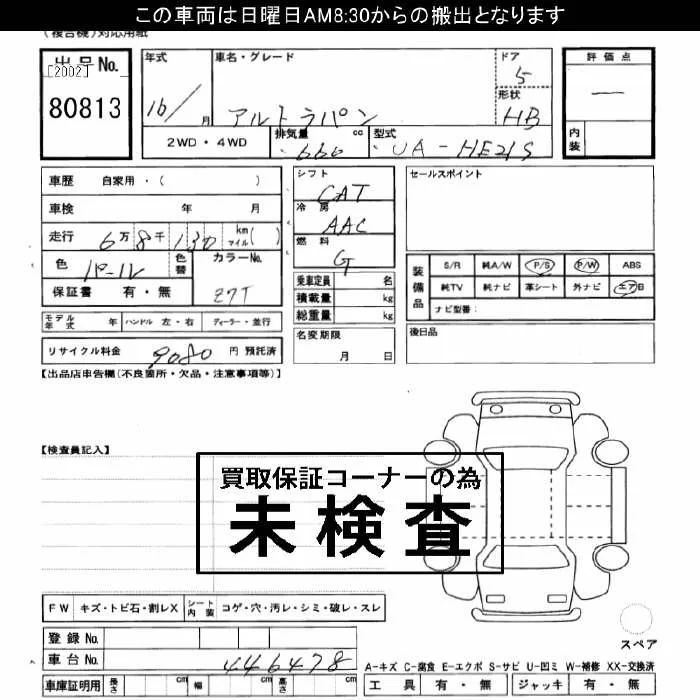 この車両は日曜日AM8:30からの搬出となります
(複合機)対応用紙
出品No.
[2002]
80813
年式
16/
月
車名・グレード
アルトラパン
ドア
5
形状
HB
2WD・4WD
排気量
cc
660
型式
UA-HE21S
評価点
内装
車歴 自家用・( )
車検 年 月
走行 6万8千130 km マイル( )
色 パール
色替
カラーNo.
Z7T
保証書 有・無
モデル年式 年 ハンドル 左・右 ディーラー・並行
リサイクル料金 9080 円 預託済
シフト
CAT
冷房
AAC
燃料
G
乗車定員 名
積載量 kg
総重量 kg
名変期限
月 日
セールスポイント
装備品
S/R 純A/W P/S P/W ABS
純TV 純ナビ 革シート 外ナビ エアB
ナビ型番:
後日品
【出品店申告欄(不良箇所・欠品・注意事項等)】
【検査員記入】
買取保証コーナーの為
未検査
FW キズ・トビ石・割レX
シート内装 コゲ・穴・汚レ・シミ・破レ・スレ
登録No.
車台No. 446478
車庫証明用 長さ cm 幅 cm 高さ cm
スペア
A-キズ C-腐食 E-エクボ S-サビ U-凹ミ W-補修 XX-交換済
工具 有・無 ジャッキ 有・無